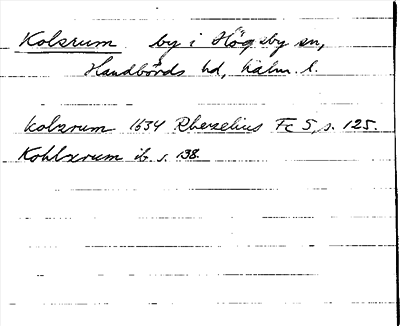 Kolsrum by i Högsby sn,
Handbörds hd, Kalm. l.
Kolsrum 1634 Rhezelius Fc 5, s. 125.
Kohlzrum ib. s. 138.